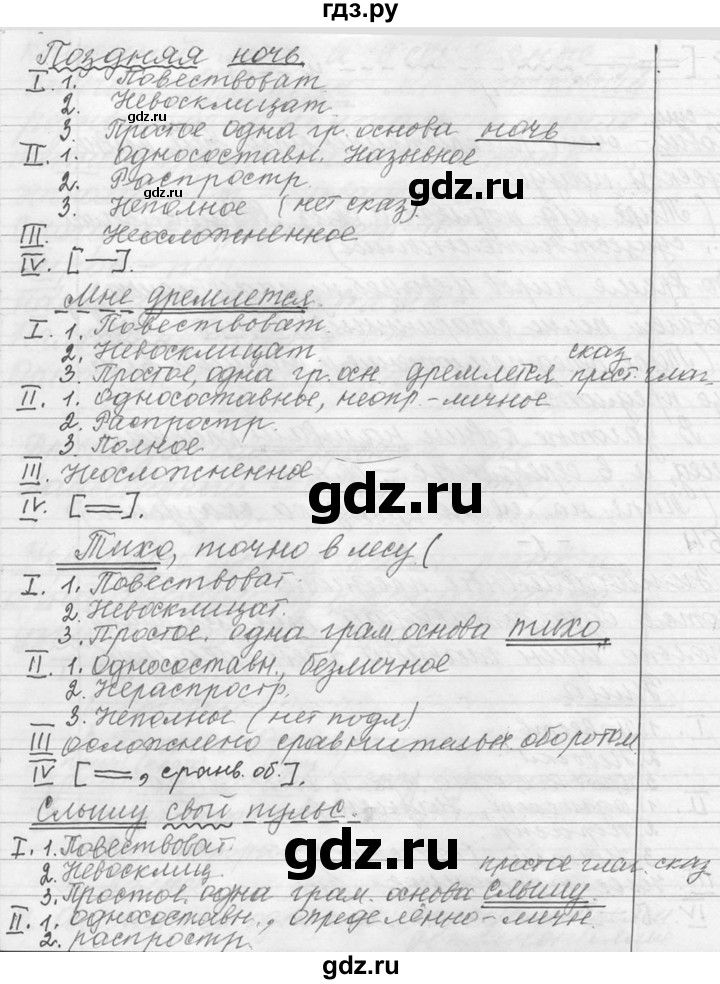 гдз.ру
Поздняя ночь.
I. 1. Повествоват.
2. Невосклицат.
3 Простое одна гр. основа ночь
II. 1. односоставн. Назывное
2. Распростр.
3. Неполное (нет сказ).
gdz.ru
III. Неосложненное
IV. [—].
Мне дремлется.
I. 1. Повествоват.
2. Невосклицат сказ
3. Простое, одна гр. осн дремлется прост. глаг.
II. 1. односоставное, неопр.-личное
2. Распростр.
3. Полное
III. Неосложненное
gdz.ru
IV. [═].
Тихо, точно в лесу (
I. 1. Повествоват.
2. Невосклицат.
3. Простое. одна грам. основа тихо
II. 1. Односоставн., безличное
2. Нераспростр.
3. Неполное (нет подл)
III осложнено сравнительн. оборотом
IV [═, сравн. об.].
Слышу свой пульс.
I. 1. Повествоват.
2. Невосклиц. простое глаг. сказ
3. Простое. одна грам. основа слышу
gdz.ru
II. 1. односоставн., определённо-личн.
2. распростр.
gdz.ru